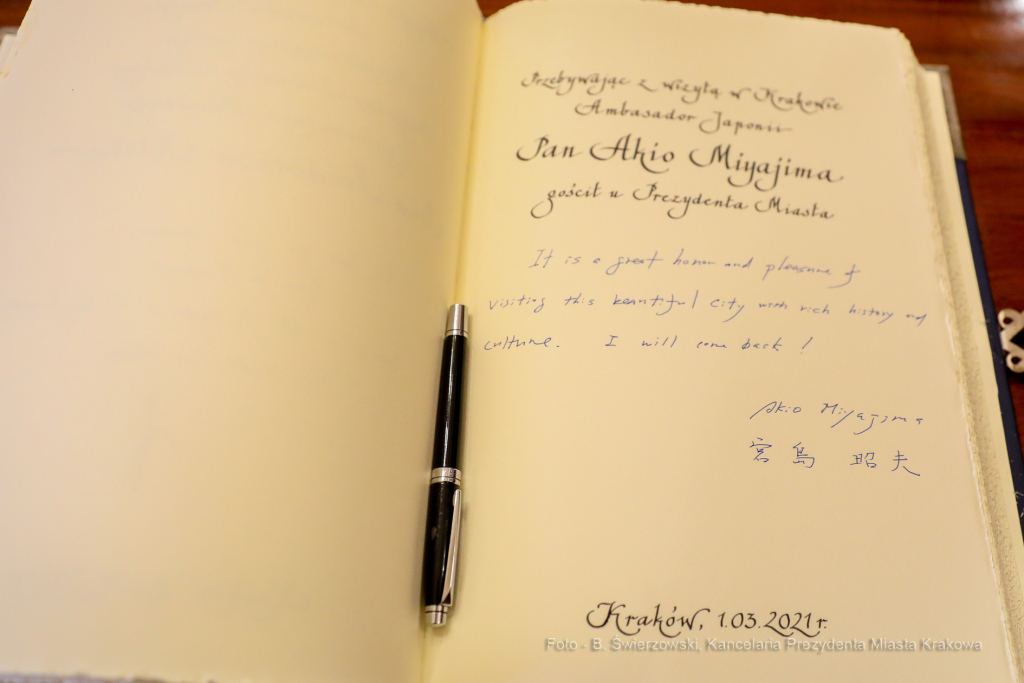 Przebywając z wizytą w Krakowie
Ambasador Japonii
Pan Akio Miyajima
gościł u Prezydenta Miasta
It is a great honor and pleasure of
visiting this beautiful city with rich history and
culture. I will come back!
Akio Miyajima
宮島 昭夫
Kraków, 1.03.2021 r.
Foto - B. Świerzowski, Kancelaria Prezydenta Miasta Krakowa